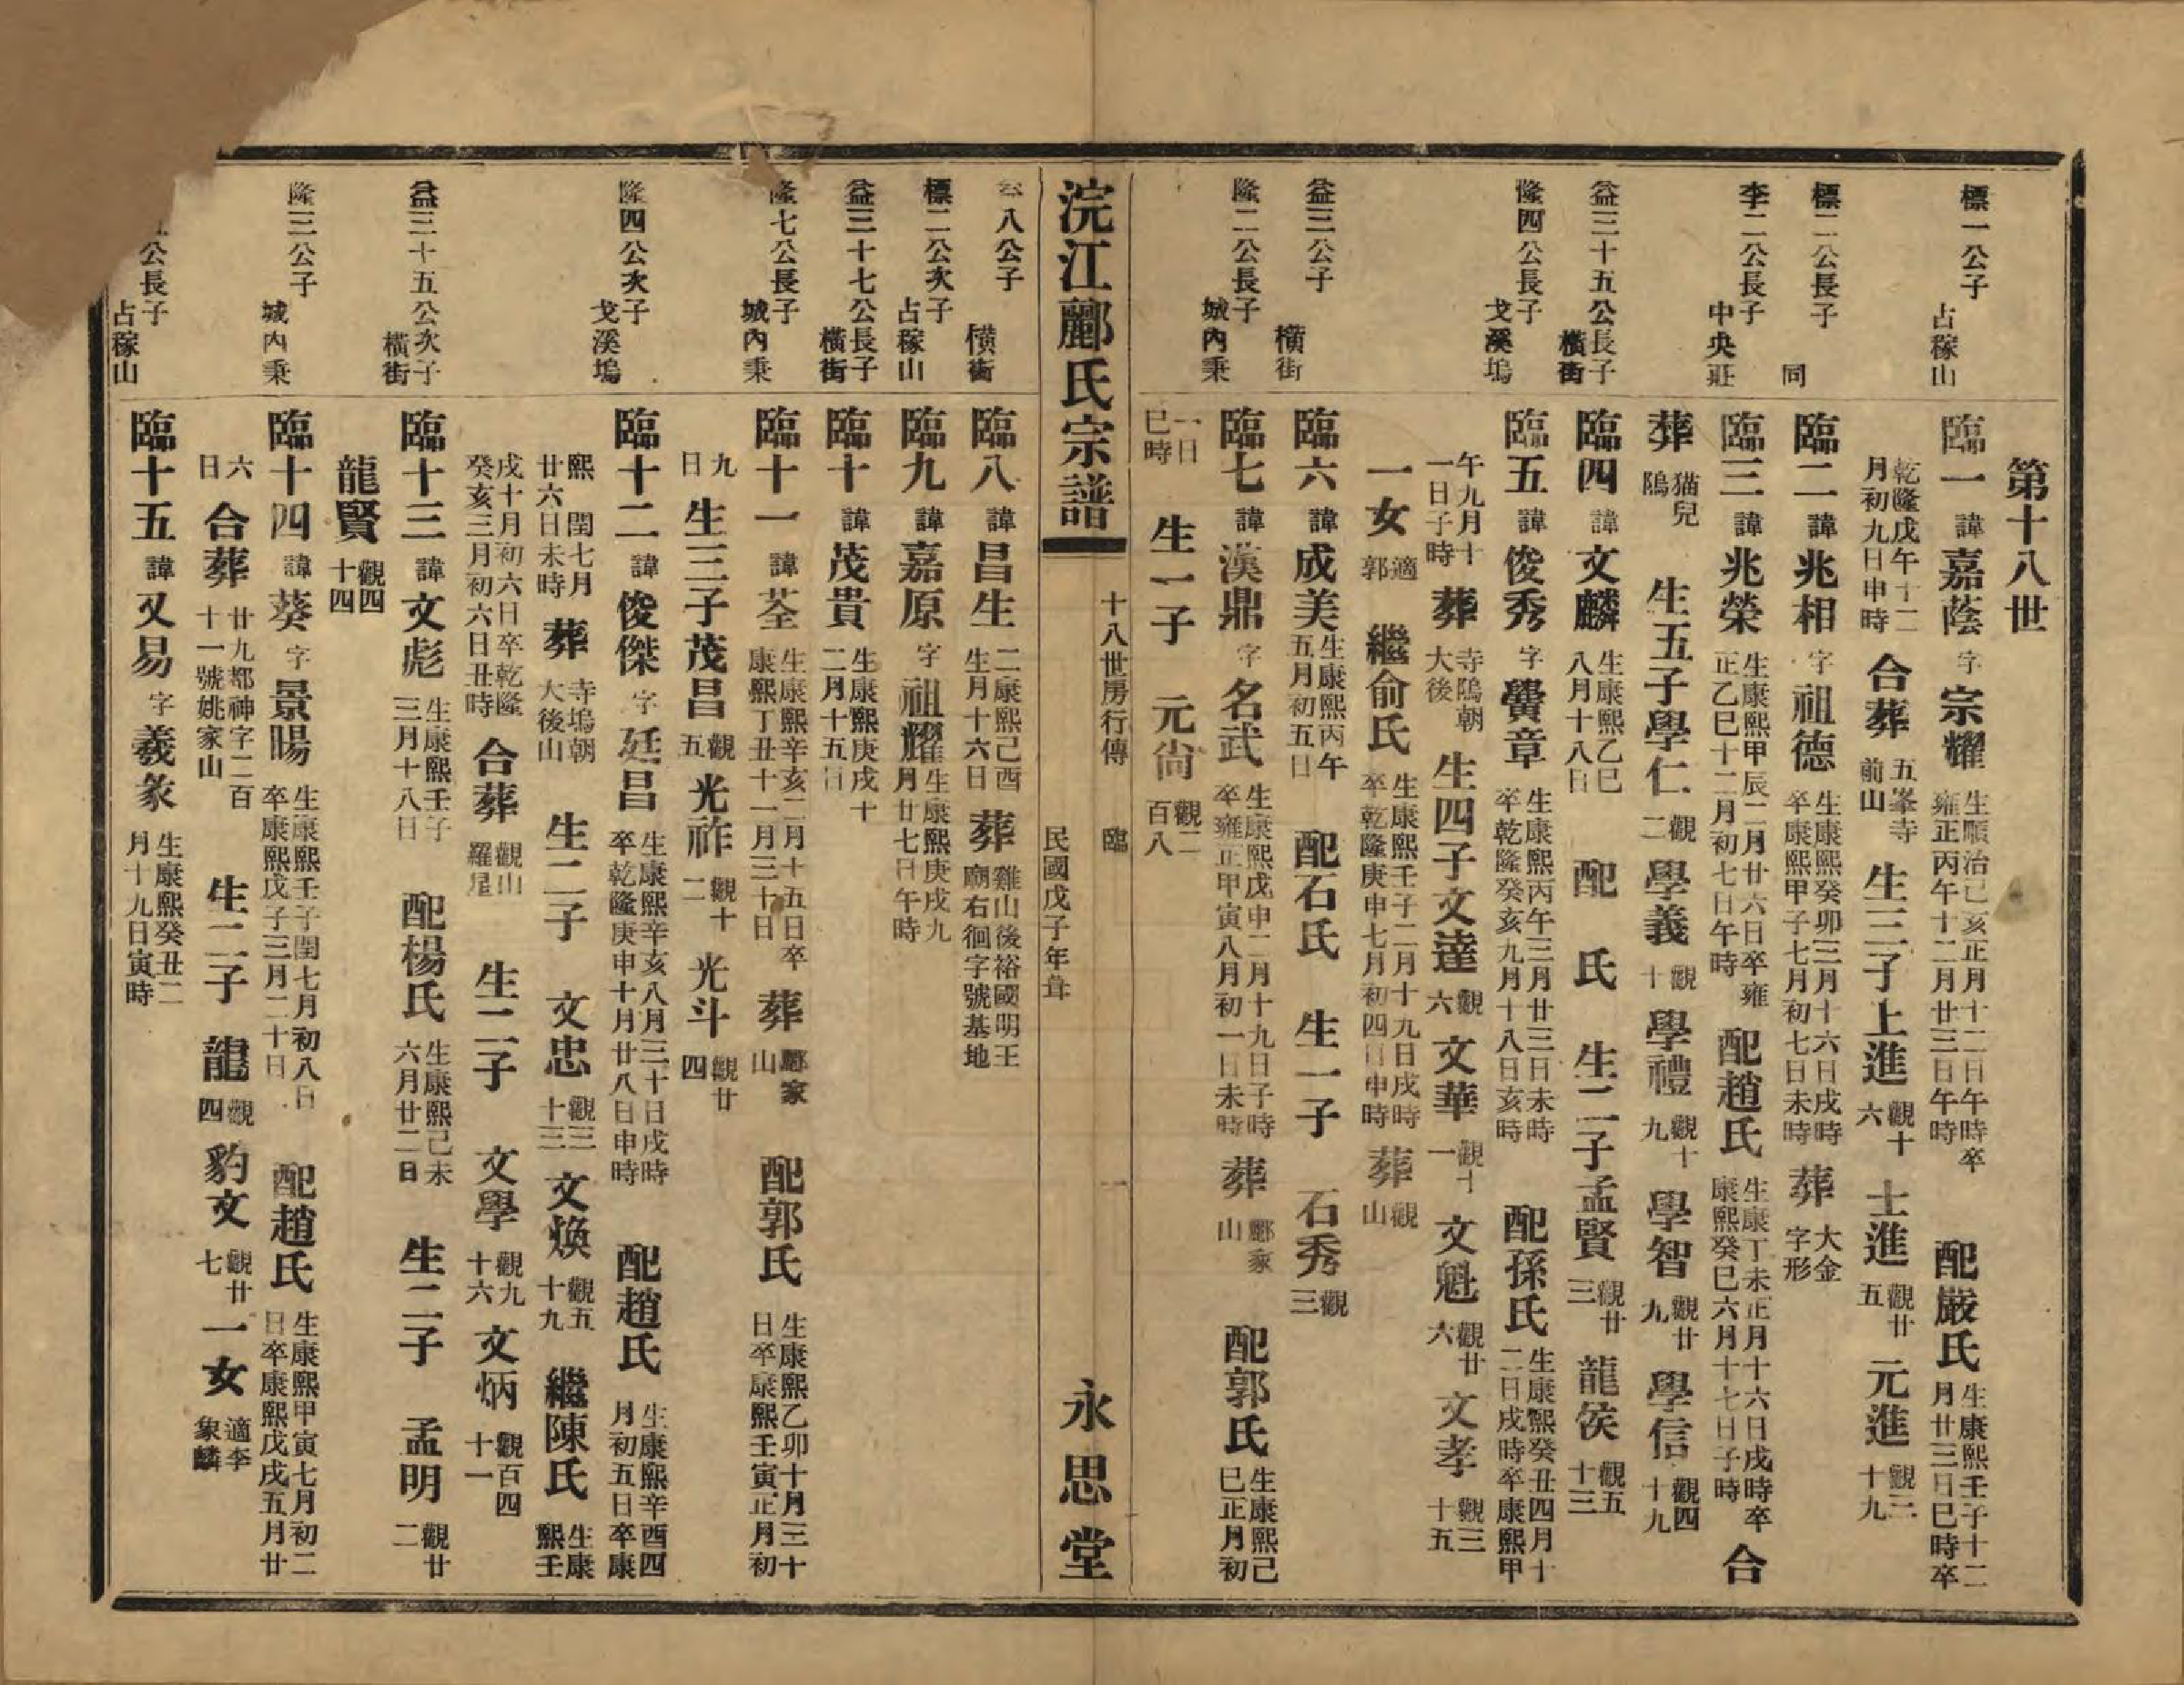 第十八世
標一公子 占稼山
臨一 諱 嘉蔭 字 宗耀 生順治己亥正月十二日午時卒雍正丙午十二月廿三日午時 配嚴氏 生康熙壬子十二月廿三日巳時卒
乾隆戊午十二月初九日申時 合葬 五峯寺前山 生三子上進 觀十六 士進 觀廿五 元進 觀三十九
標二公長子 同
臨二 諱 兆相 字 祖德 生康熙癸卯三月十六日戌時卒康熙甲子七月初七日未時 葬 大金字形
李二公長子 中央莊
臨三 諱 兆榮 生康熙甲辰二月廿六日卒雍正乙巳十二月初七日午時 配趙氏 生康丁未正月十六日戌時卒康熙癸巳六月十七日子時 合
葬 猫兒隖 生五子學仁 觀二 學義 觀十 學禮 觀十九 學智 觀廿九 學信 觀四十九
益三十五公長子 橫街
臨四 諱 文麟 生康熙乙巳八月十八日 配 氏 生二子孟賢 觀廿三 龍侯 觀五十三
隆四公長子 戈溪塢
臨五 諱 俊秀 字 黌章 生康熙丙午三月廿三日未時卒乾隆癸亥九月十八日亥時 配孫氏 生康熙癸丑四月十二日戌時卒康熙甲
午九月十一日子時 葬 寺隖朝大後 生四子文達 觀六 文華 觀十一 文魁 觀廿六 文孝 觀三十五
一女 適郭 繼俞氏 生康熙壬子二月十九日戌時卒乾隆庚申七月初四日申時 葬 觀山
益三公子 橫街
臨六 諱 成美 生康熙丙午五月初五日 配石氏 生一子 石秀 觀三
隆二公長子 城內秉
臨七 諱 漢鼎 字 名武 生康熙戊申二月十九日子時卒雍正甲寅八月初一日未時 葬 酈家山 配郭氏 生康熙己巳正月初
一日巳時 生一子 元尙 觀二百八
浣江酈氏宗譜 十八世房行傳 臨 一 民國戊子年葺 永思堂
八公子 橫街
臨八 諱 昌生 二康熙己酉生月十六日 葬 雞山後裕國明王廟右徊字號基地
標二公次子 占稼山
臨九 諱 嘉原 字 祖耀 生康熙庚戌九月廿七日午時
益三十七公長子 橫街
臨十 諱 茂貴 生康熙庚戌十二月十五日
隆七公長子 城內秉
臨十一 諱 荃 生康熙辛亥二月十五日卒康熙丁丑十一月三十日 葬 酈家山 配郭氏 生康熙乙卯十月三十日卒康熙壬寅正月初
九日 生三子茂昌 觀五 光祚 觀十二 光斗 觀廿四
隆四公次子 戈溪塢
臨十二 諱 俊傑 字 廷昌 生康熙辛亥八月三十日戌時卒乾隆庚申十月廿八日申時 配趙氏 生康熙辛酉四月初五日卒康
熙 閏七月廿六日未時 葬 寺塢朝大後山 生二子 文忠 觀三十三 文煥 觀五十九 繼陳氏 生康熙壬
戌十月初六日卒乾隆癸亥三月初六日丑時 合葬 觀山羅星 生二子 文學 觀九十六 文炳 觀百四十一
益三十五公次子 橫街
臨十三 諱 文彪 生康熙壬子三月十八日 配楊氏 生康熙己未六月廿二日 生二子 孟明 觀廿二
龍賢 觀四十四
隆三公子 城內秉
臨十四 諱 葵 字 景暘 生康熙壬子閏七月初八日卒康熙戊子三月二十日 配趙氏 生康熙甲寅七月初二日卒康熙戊戌五月廿
六日 合葬 廿九都神字二百十一號姚家山 生二子 龍 觀四 豹文 觀廿七 一女 適李象麟
公長子 占稼山
臨十五 諱 又易 字 羲彖 生康熙癸丑二月十九日寅時